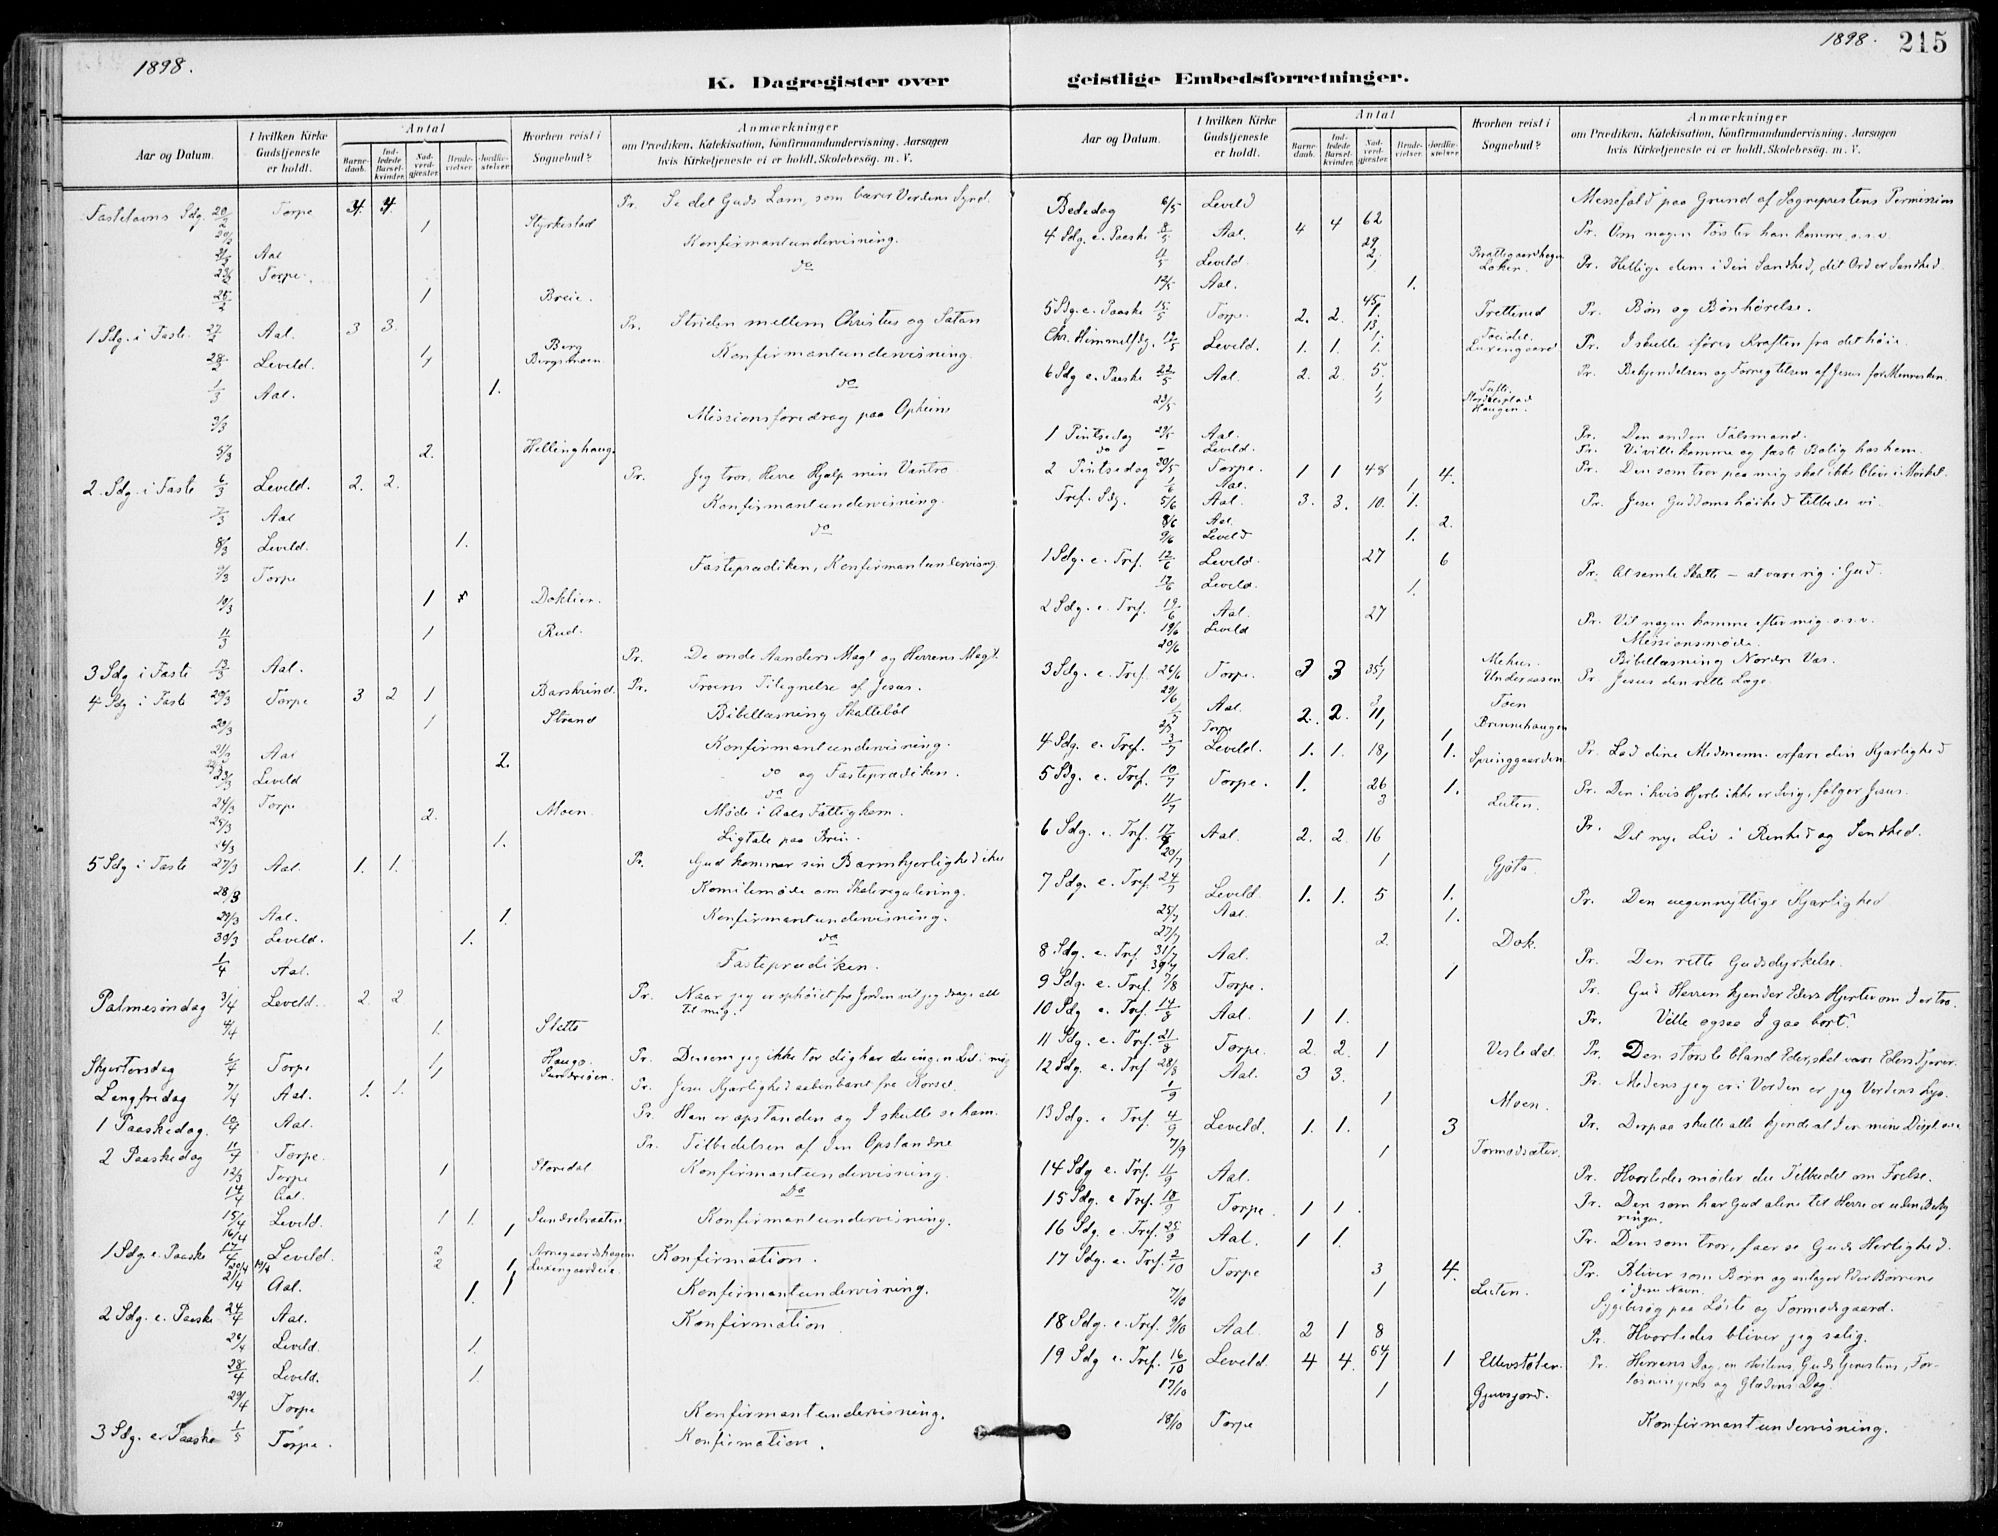 1898.
K. Dagregister over
Aar og Datum.
I hvilken Kirke Gudstjeneste er holdt.
Antal
Barnedaab.
Indledede Barselkvinder.
Nadverdgjæster.
Brudevielser.
Jordfæstelser.
Hvorhen reist i Sognebud?
Anmærkninger
om Prædiken, Katekisation, Konfirmandundervisning. Aarsagen
hvis Kirketjeneste ei er holdt. Skolebesøg. m. V.
Fastelavns Sdg. 20/2 Torpe 4. 4. Pr. Se det Guds Lam, som bærer Verdens Synd.
20/2 1 Styrkestad
Aal Konfirmantundervisning.
Torpe. do
25/2 1 Breie.
1 Sdg. i Faste 27/2 Aal. 3 3. Pr. Striden mellem Christus og Satan
28/2 Leveld. Berg Konfirmantundervisning.
1/3 Aal. 1. do
3/3 Missionsforedrag paa Opheim
5/3 2. Hellinghaug.
2. Sdg. i Faste 6/3 Leveld. 2. 2. Pr. Jeg tror, Herre Hjælp min Vantro
7/3 Aal Konfirmantundervisning.
8/3 Leveld. 1. do
9/3 Torpe Fasteprædiken, Konfirmantundervisng.
10/3 1 Doklien.
11/3 1 Rud.
3 Sdg i Faste 13/3 Aal. Pr. De onde Aanders Magt og Herrens Magt.
4 Sdg i Faste 20/3 Torpe 3 2 1 Barskrind. Pr. Troens Tilegnelse af Jesus.
20/3 1 Strand Bibellæsning Skattebøl
21/3 Aal 2. Konfirmantundervisning.
23/3 Leveld do og Fasteprædiken.
24/3 Torpe do
25/3 2. Moen. Møde i Aals Fattigkom.
1. Ligtale paa Brei.
5 Sdg i Faste 27/3 Aal. 1. 1. Pr. Gud kommer sin Barmhjertighed ihu
28/3 Komitemøde om Skoleregulering.
29/3 Aal. 1. Konfirmantundervisning.
30/3 Leveld. 1. do
1/4 Aal. Fasteprædiken.
Palmesøndag 3/4 Leveld. 2. 2 Pr. Naar jeg er ophøiet fra Jorden vil jeg drage alle
til mig.
4/4 1. Slette
Skjertorsdag 6/4 Torpe Haugs. Pr. Dersom jeg ikke tor dig har du ingen Lod i mig
Langfredag 7/4 Aal. 1. 1. Pr. Jesu Kjærlighed aabenbaret fra Korset.
1 Paaskedag. 10/4 Aal. Pr. Han er opstanden og I skulle se ham.
2 Paaskedag 11/4 Torpe. Pr. Tilbedelsen af den Opstandne
Torpe 1 Storedal Konfirmantundervisning.
14/4 Aal. Do
15/4 Leveld. 1 1. Sundrelsaaten Konfirmantundervisning.
16/4 1
1 Sdg. e. Paaske 17/4 Leveld. 2 Arnegaardshagen Konfirmation.
20/4 19/4 2 1 Luxengaardeie.
21/4 Aal. 1. 1 Konfirmantundervisning.
2 Sdg. e. Paaske 24/4 Aal. Konfirmation
Leveld. 1.
28/4 Leveld. 1.
29/4 Torpe Konfirmantundervisning.
3 Sdg. e. Paaske 1/5 Torpe. Konfirmation.
1898. 215
geistlige Embedsforretninger.
Aar og Datum.
I hvilken Kirke Gudstjeneste er holdt.
Antal
Barnedaab.
Indledede Barselkvinder.
Nadverdgjæster.
Brudevielser.
Jordfæstelser.
Hvorhen reist i Sognebud?
Anmærkninger
om Prædiken, Katekisation, Konfirmandundervisning. Aarsagen
hvis Kirketjeneste ei er holdt. Skolebesøg. m. V.
Bededag 6/5 Leveld Messefald paa Grund af Sogneprestens Permission
4 Sdg. e. Paaske 8/5 Aal. 4 4 62 Pr. Om nogen Tørster han komme, o.s.v.
Leveld. Pr. Hellige dem i din Sandhed, dit Ord er Sandhed.
12/5 Aal. 1.
5 Sdg. e. Paaske 15/5 Torpe. 2. 2. 45 Trettetud Pr. Bøn og Bønhørelse.
Chr. Himmelfdg. 19/5 Leveld. 1. 1. Luxengaard Pr. I skulle iføres Kraften fra det høie.
6 Sdg e. Paaske 22/5 Aal. 2. 2. 5. Pr. Bekjendelsen og Fornegtelsen af Jesus for Mennesken.
23/5 Tufte. Haugen.
1 Pintsedag 29/5 Aal. Pr. Den anden Talsmand.
do - Leveld. Pr. Vi ville komme og fæste Bolig hos ham.
2 Pintsedag 30/5 Torpe. 1 1 48 4. Pr. Den som tror paa mig skal ikke blive i Mørket.
1/6 Aal. 1.
Tref. Sdg. 5/6 Aal. 3. 3. 10. 1. Pr. Jesu Guddomshøihed tilbede vi.
8/6 Aal. 2.
9/6 Leveld 1.
1 Sdg. e. Tref. 12/6 Leveld. 27 6 Pr. At samle Skatte – at være rig i Gud.
Leveld. 1.
2 Sdg. e. Tref. 19/6 Aal. 27 Pr. Vil nogen komme efter mig o.s.v.
19/6 Leveld Missionsmøde.
20/6 Bibellæsning Nordre Vas.
3 Sdg. e. Tref. 26/6 Torpe. 3 3 Mehus. Underaasen Pr. Jesus den rette Læge.
29/6 Toen
Aal. 2. 2. 11, Brennehaugen
Torpe 1
4 Sdg. e. Tref. 3/7 Leveld. 1. 1. 18, 1. Springgaarden Pr. Lad dine Medmenn. erfare din Kjærlighed
5 Sdg. e. Tref. 10/7 Torpe. 1. 26 1. Pr. Den i hvis Hjerte ikke er Svig, følger Jesus.
11/7 3 Luten.
6 Sdg. e. Tref. 17/7 Aal. 2. 2. 16 Pr. Det nye Liv i Renhed og Sandhed.
20/7 1 Gjøta.
7 Sdg. e. Tref. 24/7 Leveld. 1. 1. 5 1. Pr. Den uegennyttige Kjærlighed
25/7 Aal. 1.
27/7 2. Dok.
8 Sdg. e. Tref. 31/7 Aal. Pr. Den rette Gudsdyrkelse.
1
9 Sdg. e. Tref. 7/8 Torpe. Pr. Gud Herren kjender Eders Hjerter om I er tro.
10 Sdg e. Tref. 14/8 Aal. 1 1. Pr. Ville ogsaa I gaa bort?
11 Sdg. e. Tref. 21/8 Torpe. 2. 2. 1 Vesledal. Pr. Den største bland Eder, skal være Eders Tjener.
12 Sdg. e. Tref 28/8 Aal. 3 3. Pr. Medens jeg er i Verden er jeg Verdens Lys.
1/9 1 Moen.
13 Sdg. e Tref. 4/9 Leveld. 1. 1. 3 Pr. Derpaa skulle alle kjende at I er mine Disiple
7/9 1 Tormodsæter.
14 Sdg e. Tref. 11/9 Aal. Pr. Hvorledes møder du Tilbudet om Frelse.
15 Sdg. e Tref. 18/9 Torpe. 1 1. Pr. Den som har Gud alene til Herre er uden Beky
ringer.
16 Sdg. e. Tref. 25/9 Aal. 1 1. Pr. Den som tror, faar se Guds Herlighed.
17 Sdg. e. Tref. 2/10 Torpe 3 4. Pr. Bliver som Børn og antager Eder Børnene
i Jesu Navn.
7/10 1 Luten. Sygebesøg paa Løste og Tormodsgaard.
18 Sdg. e. Tref. 9/10 Aal. 2 1 8 Pr. Hvorledes bliver jeg salig.
19 Sdg e. Tref. 16/10 Leveld. 4 4. 64 1 Ellevstølen. Pr. Herrens Dag, en Hvilens, Gudstjenestens, For-
løsningens og Glædens Dag.
17/10 1 Gjuvsjord.
18/10 Torpe Konfirmantundervisning.